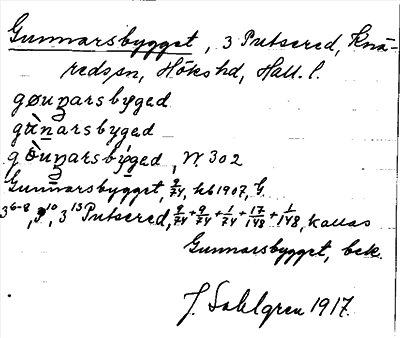 Gunnarsbygget, 3 Putsered, Knä-
redssn, Hökshd, Hall. l.
gøunarsbyged
gùnarsbyged
gòunarsbýged, W 302
Gunnarsbygget, 9/74, kb 1907, G.
3⁶⁻⁸, 9¹⁰, 3¹³ Putsered, 9/74 + 9/74 + 1/74 + 17/148 + 1/148, kallas
Gunnarsbygget, bek.
J. Sahlgren 1917.